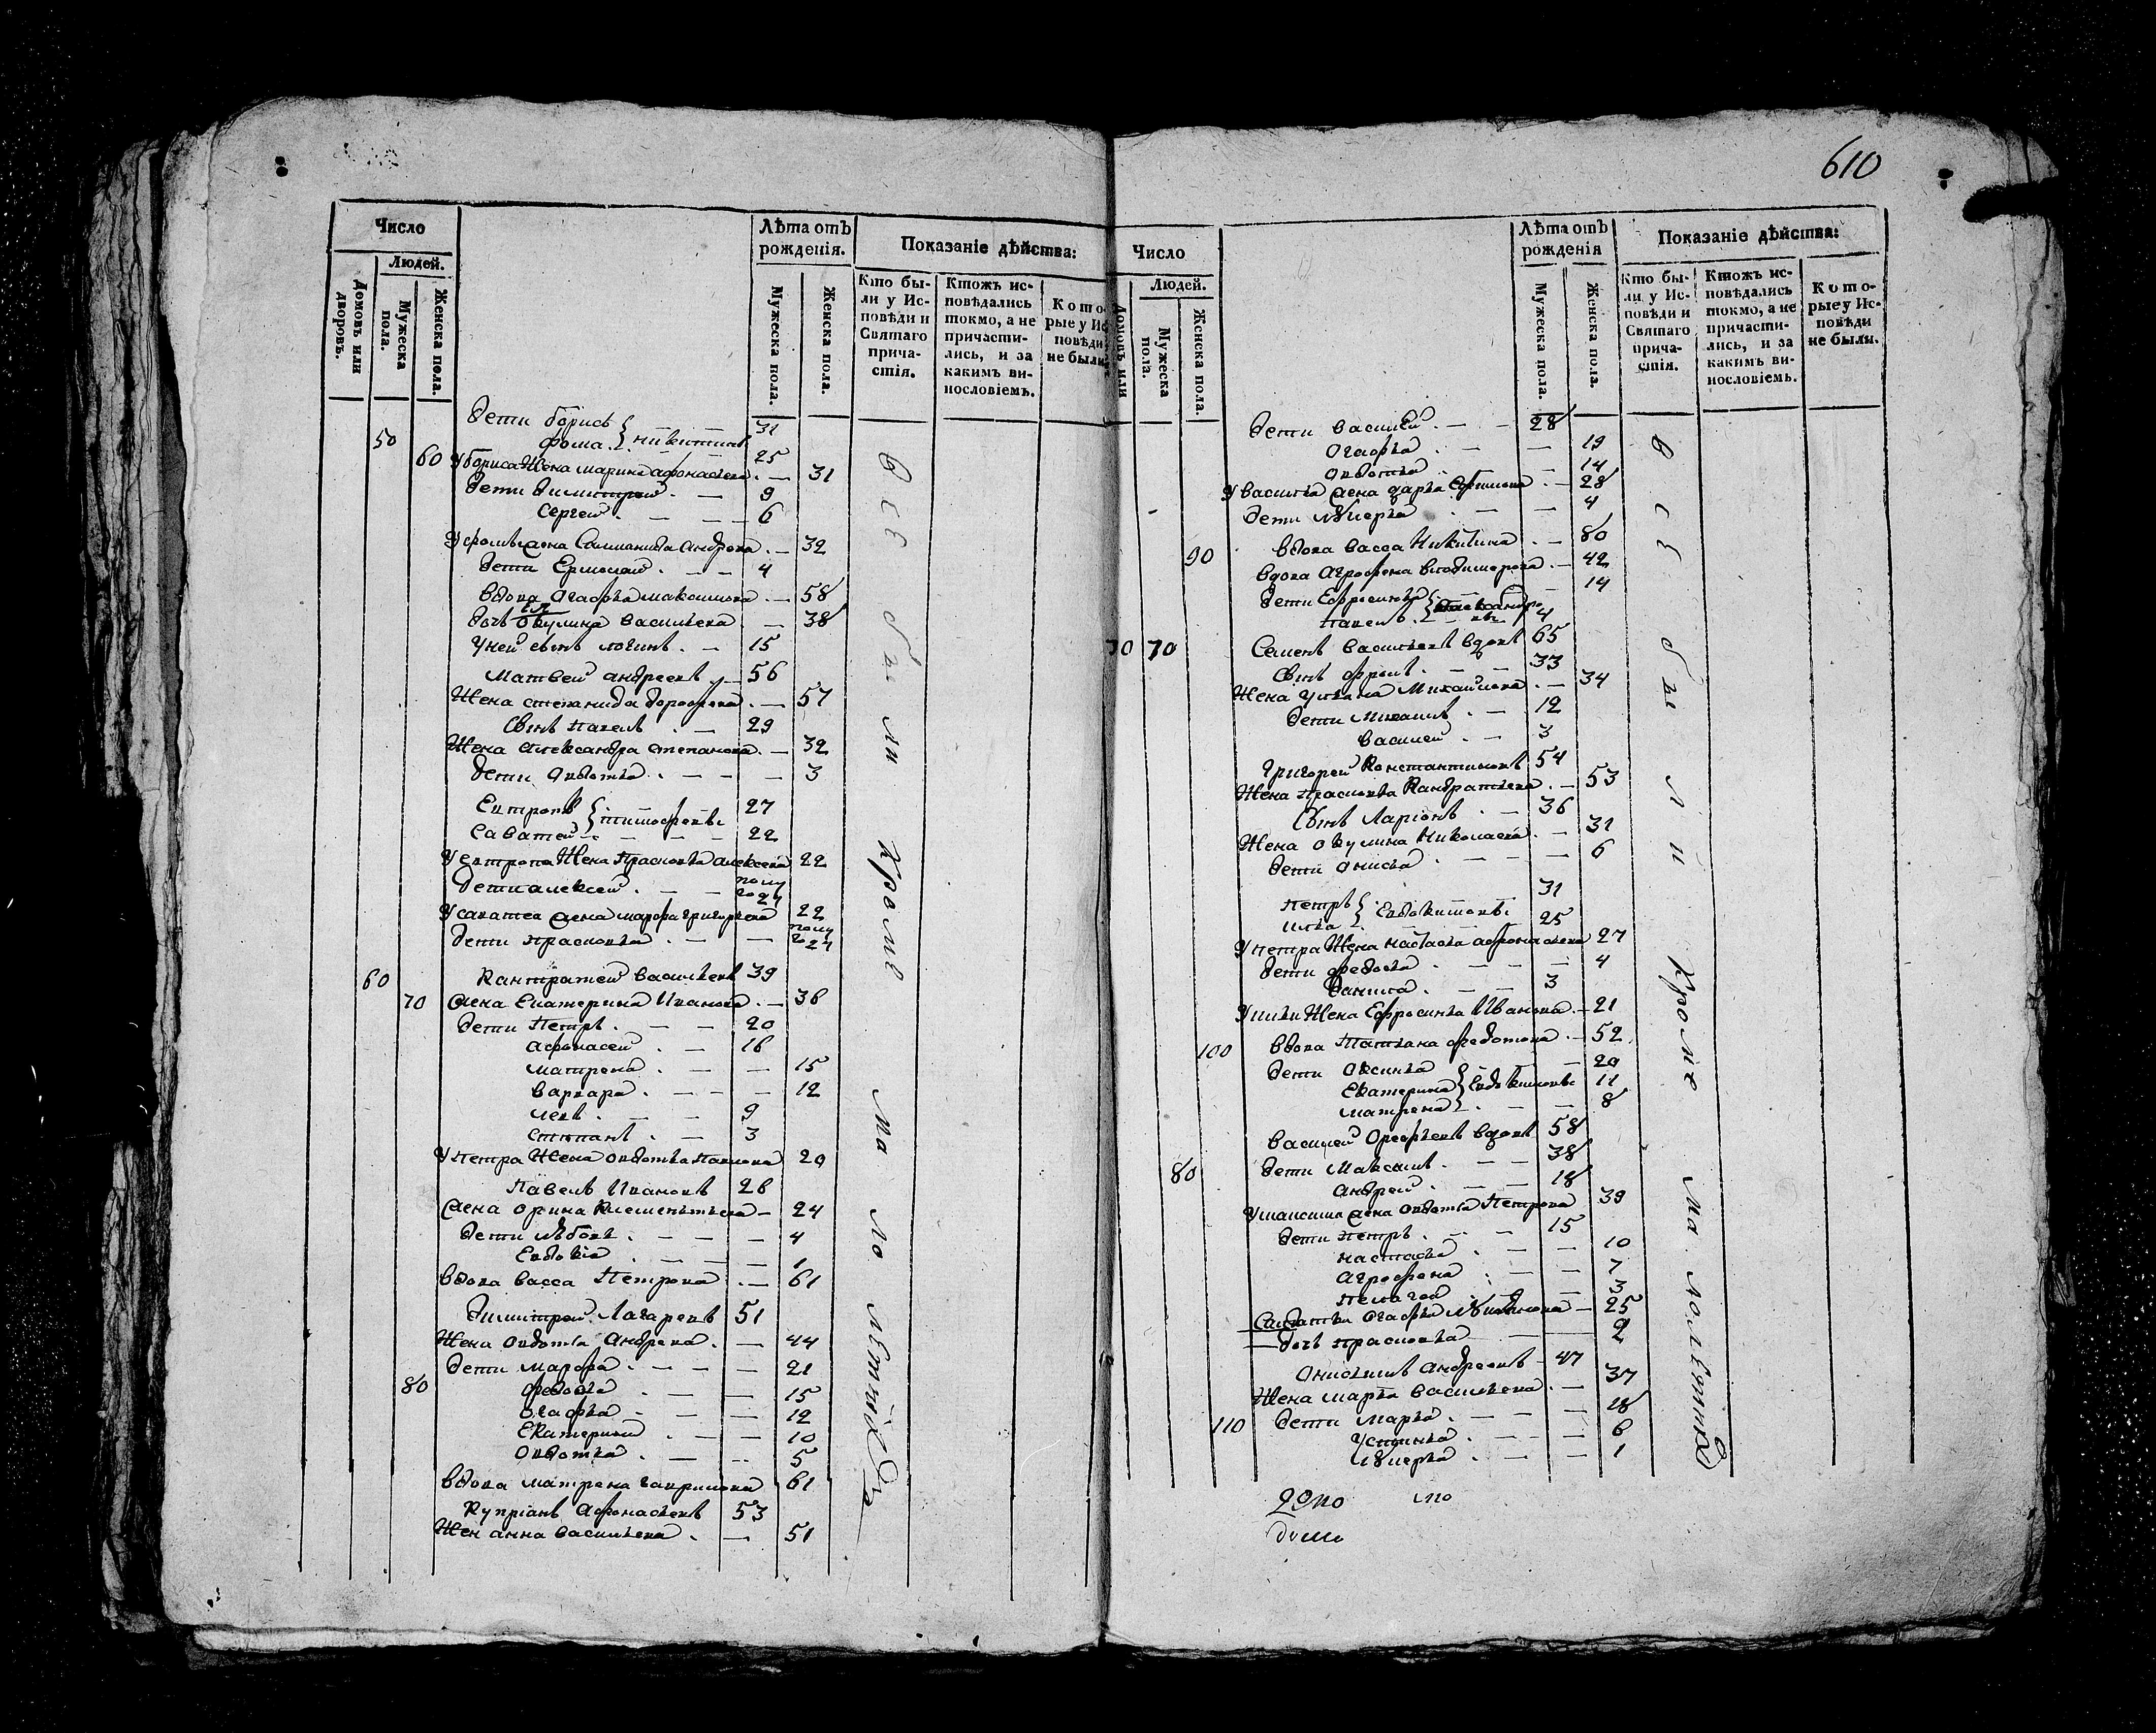 610
Число
Людей.
Домовъ или дворовъ.
Мужеска пола.
Женска пола.
Лѣта отъ рожденія.
Мужеска пола.
Женска пола.
Показаніе дѣйства:
Кто бы-
ли у Ис-
повѣди и
Святаго
прича-
стія.
Ктожъ ис-
повѣдались
токмо, а не
причасти-
лись, и за
какимъ ви-
нословіемъ.
Кото-
рые у Ис
повѣди
не были.
дети борисъ 31
50 фома никитины 25
60 У бориса Жена марина афонасьева 31
дети димитрей 9
Сергей 6
У фомы жена Соломанида андреева 32
дети Ермолай 4
вдова Огафья максимова 58
дочь Окулина васильева 38
У ней сынъ логинъ 15
Матвей андреевъ 56
Жена степанида дорофеева 57
Сынъ павелъ 29
Жена александра степанова 32
дети овдотья 3
Евтропъ 27
Саватей тимофеевы 22
У евтропа Жена Прасковья алексеева 22
дети алексей полу года
У саватея жена марфа григорьева 22
дети прасковья полу года
60 Кантратей васильевъ 39
70 жена Екатерина Иванова 36
дети Петръ 20
афонасей 16
матрена 15
варвара 12
левъ 9
степанъ 3
У петра Жена овдотья павлова 20
Павелъ Ивановъ 26
жена орина Клементьева 24
дети любовь 4
Евдокія 1
вдова васса Петрова 61
димитрей Лазаревъ 51
Жена овдотья андреева 44
дети марфа 21
80 федосья 15
огафья 12
Екатерина 10
овдотья 5
вдова матрена гаврилова 61
Купріанъ афонасьевъ 53
Жен анна васильева 51
всѣ были кроме малолѣтних
Число
Людей.
Домовъ или
Мужеска пола.
Женска пола.
Лѣта отъ рожденія
Мужеска пола.
Женска пола.
Показаніе дѣйства:
Кто бы-
ли у Ис-
повѣди и
Святаго
прича-
стія.
Ктожъ ис-
повѣдались
токмо, а не
причасти-
лись, и за
какимъ ви-
нословіемъ.
Кото-
рые у Ис-
повѣди
не были.
дети василей 28
огафья 19
овдотья 14
У василья жена дарья 28
дети лукерья 4
вдова васса Никитина 80
90 вдова агрофена владимерова 42
дети Ефросинья 14
павелъ 4
70 Семенъ васильевъ вдовъ 65
Сынъ фролъ 33
Жена ульяна Михайлова 34
дети михаилъ 12
василей 3
григорей Константиновъ 54
Жена прасковья Кандратьева 53
Сынъ Ларіонъ 36
Жена окулина Николаева 31
дети анисья 6
петръ 31
илья Евдокимовы 25
У петра Жена настасья афонасьева 27
дети федосья 4
данила 3
У ильи Жена Ефросинья Иванова 21
100 вдова Татьяна федотова 52
дети Оксинья 20
Екатерина Евдокимовы 11
матрена 8
василей вдовъ 58
80 дети максимъ 38
андрей 18
У максима жена овдотья Петрова 39
дети петръ 15
настасья 10
агрофена 7
пелагея 3
Салдатка огафья 25
дочь прасковья 2
онисимъ андреевъ 47
Жена марья васильева 37
110 дети марья 18
устинья 6
лукерья 1
всѣ были кроме малолѣтних